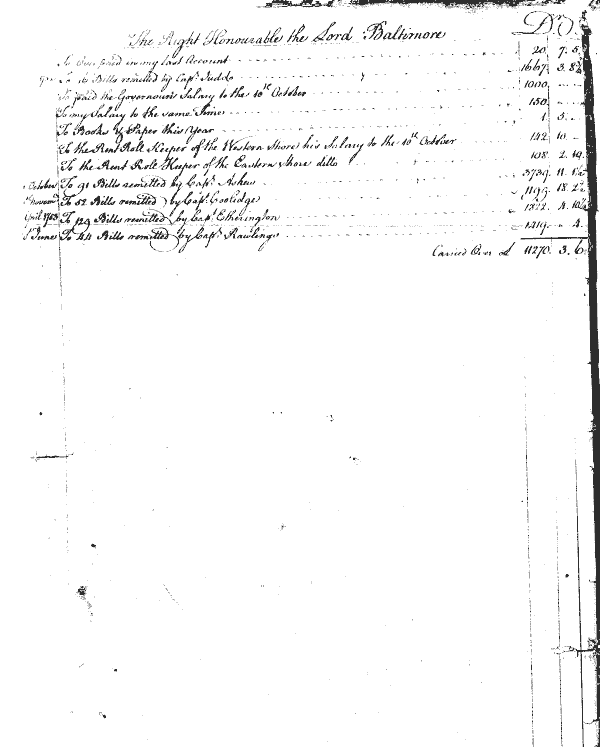 The Right Honourable the Lord Baltimore Dr.
To Over paid in my last Account 20. 7. 5
To Bills remitted by Capt. Judd 1667. 3. 8½
To paid the Governours Salary to the 10th October 1000
To my Salary to the same Time 150
To Books & Paper this Year 1. 5.
To the Rent Roll Keeper of the Western Shore his Salary to the 10th October 142 10
To the Rent Roll Keeper of the Eastern Shore ditto 108. 2. 10
October To 91 Bills remitted by Capt. Askew 3739. 11.
Novemr. To 52 Bills remitted by Capt. Coolidge 1199. 18. 2
April 1753 To 129 Bills remitted by Capt. Etherington 4. 10½
June To 44 Bills remitted by Capt. Rawlings 1219. 4.
Carried Over £ 11270. 3. 6